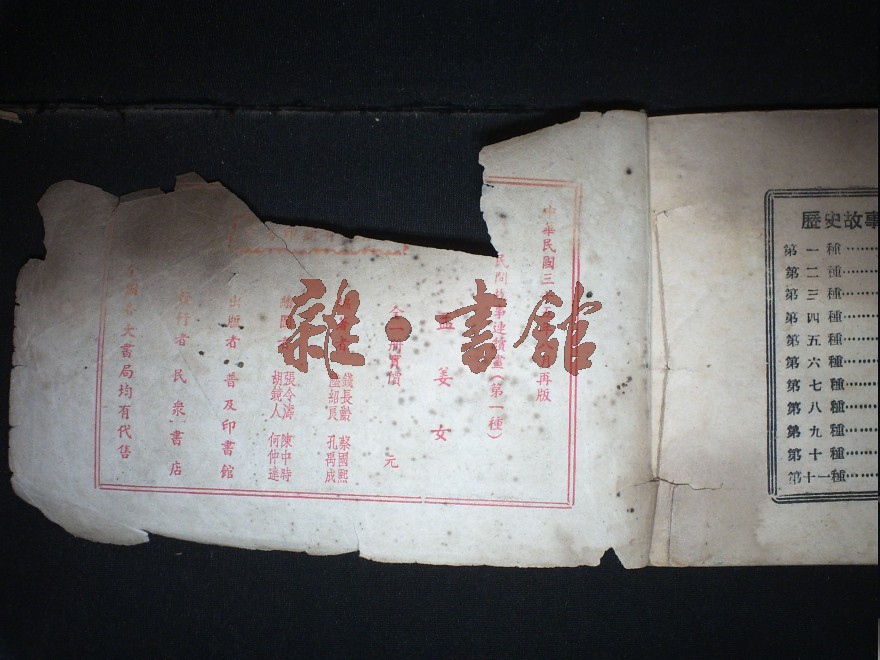 中華民國三
再版
民間故事連續畫(第一種)
孟姜女
全一冊實價 元
錢長齡 蔡國熙
盛紹民 孔禺成
繪圖
張令濤 陳中時
胡鏡人 何仲達
出版者 普及印書館
發行者 民衆書店
全國各大書局均有代售
雜·書館
歷史故事
第一種
第二種
第三種
第四種
第五種
第六種
第七種
第八種
第九種
第十種
第十一種